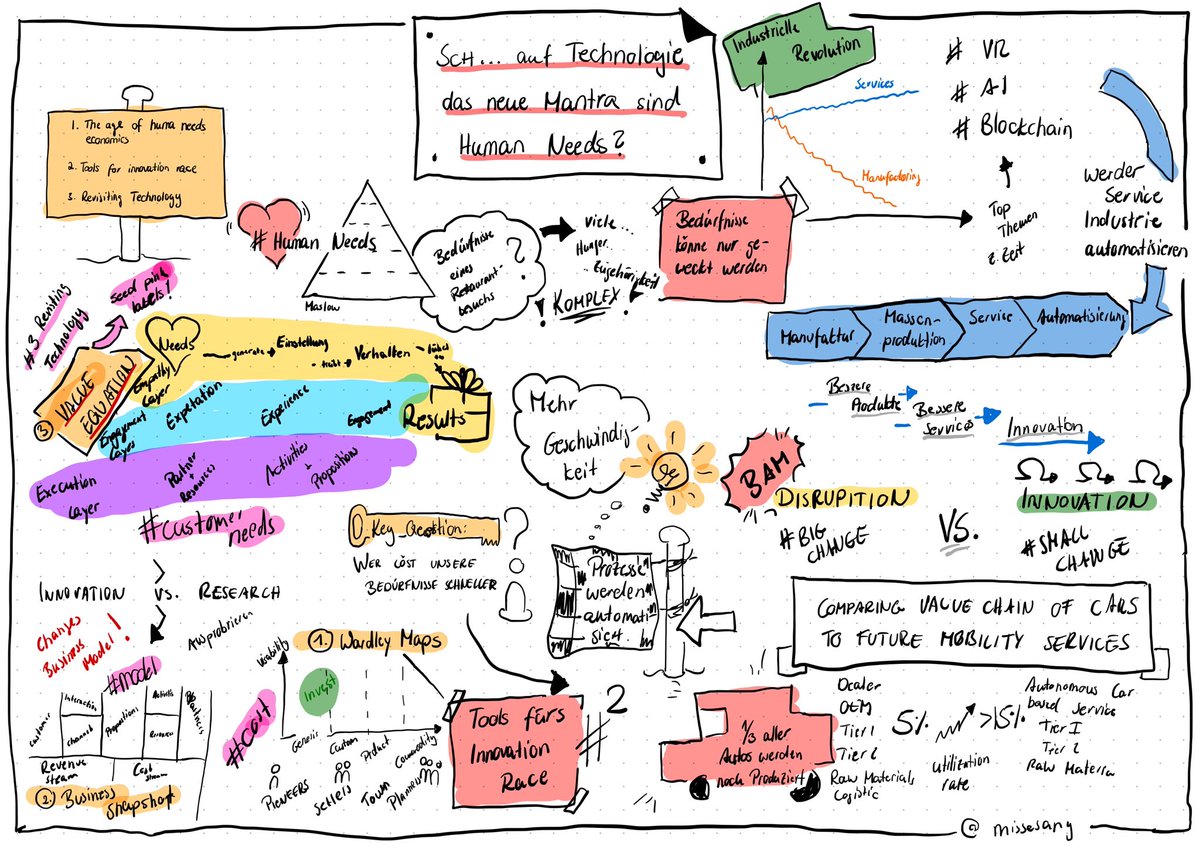 Sch... auf Technologie
das neue Mantra sind
Human Needs?
1. The age of huma needs
economics
2. Tools for innovation race
3. Revisiting Technology
# Human Needs
Maslow
Bedürfnisse
eines
Restaurant-
besuchs
?
Viele...
Hunger
...Zugehörigkeit
! KOMPLEX !
Bedürfnisse
könne nur ge-
weckt werden
Industrielle
Revolution
Services
Manufactoring
# VR
# AI
# Blockchain
Top
Themen
z. Zeit
werder
Service
Industrie
automatisieren
Manufaktur
Massen-
produktion
Service
Automatisierung
Bessere
Produkte
Bessere
Services
Innovation
BAM
DISRUPITION
# BIG
CHANGE
VS.
INNOVATION
# SMALL
CHANGE
#3 Reviting
Technology
Seed pink
labels!
③ VALUE
EQUATION
Empathy
Layer
Needs
generate
Einstellung
Verhalten
Engagement
Layer
Expetation
Experience
Engagement
Results
Execution
Layer
Partner
+
Resources
Activities
+
Propositions
#customer
needs
Mehr
Geschwindig-
keit
Prozesse
werden
automati
siert.
Key Question:
WER LÖST UNSERE
BEDÜRFNISSE SCHNELLER
?
INNOVATION VS. RESEARCH
Changes
Business
Model!
Ausprobieren
#model
Customer
Interaction
Channel
Propositions
Activitis
Resources
Partners
Revenue
stream
Cost
stream
② Business
Snapshot
#cast
① Wardley Maps
Viability
Invest
Genesis
Custom
Product
Commodity
PIONEERS
Settlers
Town
Planners
Tools fürs
Innovation
Race
#2
1/3 aller
Autos werden
noch Produziert
COMPARING VALUE CHAIN OF CARS
TO FUTURE MOBILITY SERVICES
Dealer
OEM
Tier 1
Tier 2
Raw Materials
Logistic
5% >15%
utilization
rate
Autonomous Car
based Service
Tier I
Tier 2
Raw Materia
@ missesany